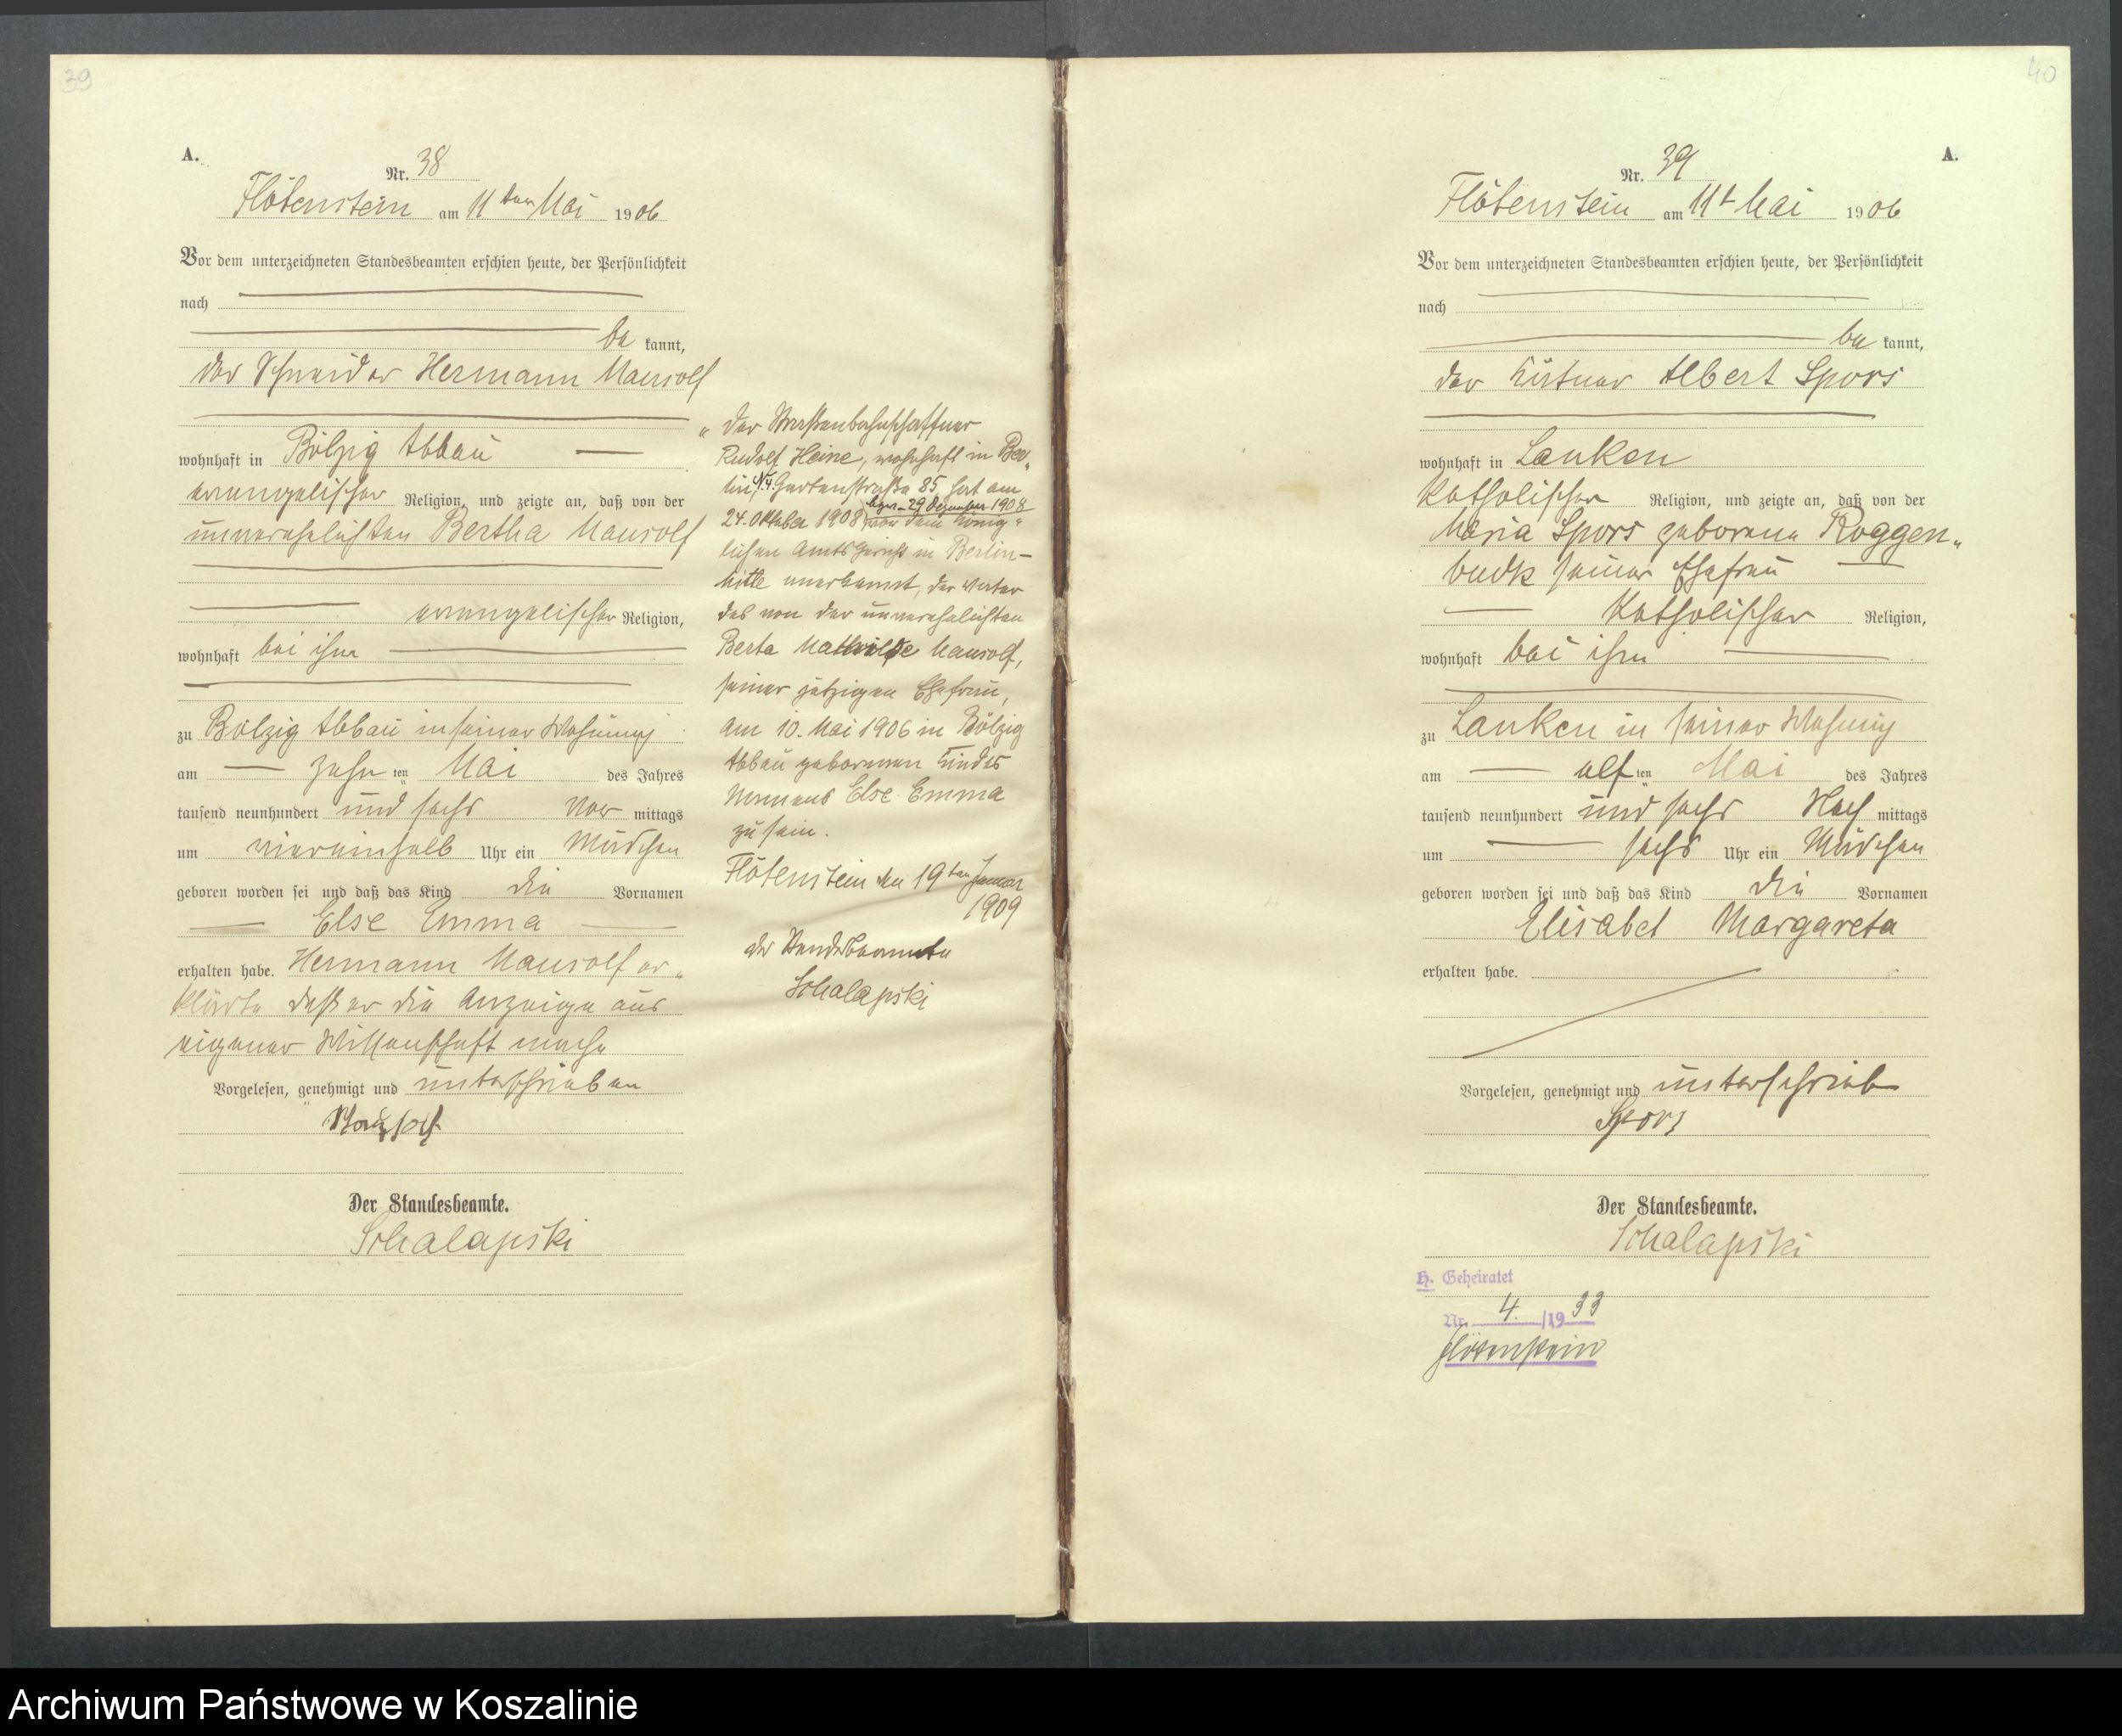 39
A.
Nr. 38
Flötenstein am 11ten Mai 1906
Vor dem unterzeichneten Standesbeamten erschien heute, der Persönlichkeit
nach
be kannt,
der Schneider Hermann Mausolf
wohnhaft in Bölzig Abbau
evangelischer Religion, und zeigte an, daß von der
unverehelichten Bertha Mausolf
evangelischer Religion,
wohnhaft bei ihm
zu Bölzig Abbau in seiner Wohnung
am zehn ten Mai des Jahres
tausend neunhundert und sechs Vor mittags
um viereinhalb Uhr ein Mädchen
geboren worden sei und daß das Kind die Vornamen
Else Emma
erhalten habe. Hermann Mausolf er-
klärte daß er die Anzeige aus
eigener Wissenschaft mache
Vorgelesen, genehmigt und unterschrieben
Mausolf
Der Standesbeamte.
Schalapski
"Der Straßenbahnschaffner
Rudolf Heine, wohnhaft in Ber-
lin N.4. Gartenstraße 85 hat am
bezw. 29 Dezember 1908
24. Oktober 1908 vor dem König-
lichen Amtsgericht in Berlin-
Mitte anerkannt, der Vater
des von der unverehelichten
Berta Mathilde Mausolf,
seiner jetzigen Ehefrau,
am 10. Mai 1906 in Bölzig
Abbau geborenen Kindes
Namens Else Emma
zu sein.
Flötenstein den 19ten Januar
1909
der Standesbeamte
Schalapski
40
A.
Nr. 39
Flötenstein am 11t Mai 1906
Vor dem unterzeichneten Standesbeamten erschien heute, der Persönlichkeit
nach
be kannt,
der Kätner Albert Spors
wohnhaft in Lanken
katholischer Religion, und zeigte an, daß von der
Maria Spors geborene Roggen-
buck seiner Ehefrau
katholischer Religion,
wohnhaft bei ihm
zu Lanken in seiner Wohnung
am elf ten Mai des Jahres
tausend neunhundert und sechs Nach mittags
um sechs Uhr ein Mädchen
geboren worden sei und daß das Kind die Vornamen
Elisabet Margareta
erhalten habe.
Vorgelesen, genehmigt und unterschrieb
Spors
Der Standesbeamte.
Schalapski
H. Geheiratet
Nr. 4. /19 33
Flötenstein
Archiwum Państwowe w Koszalinie